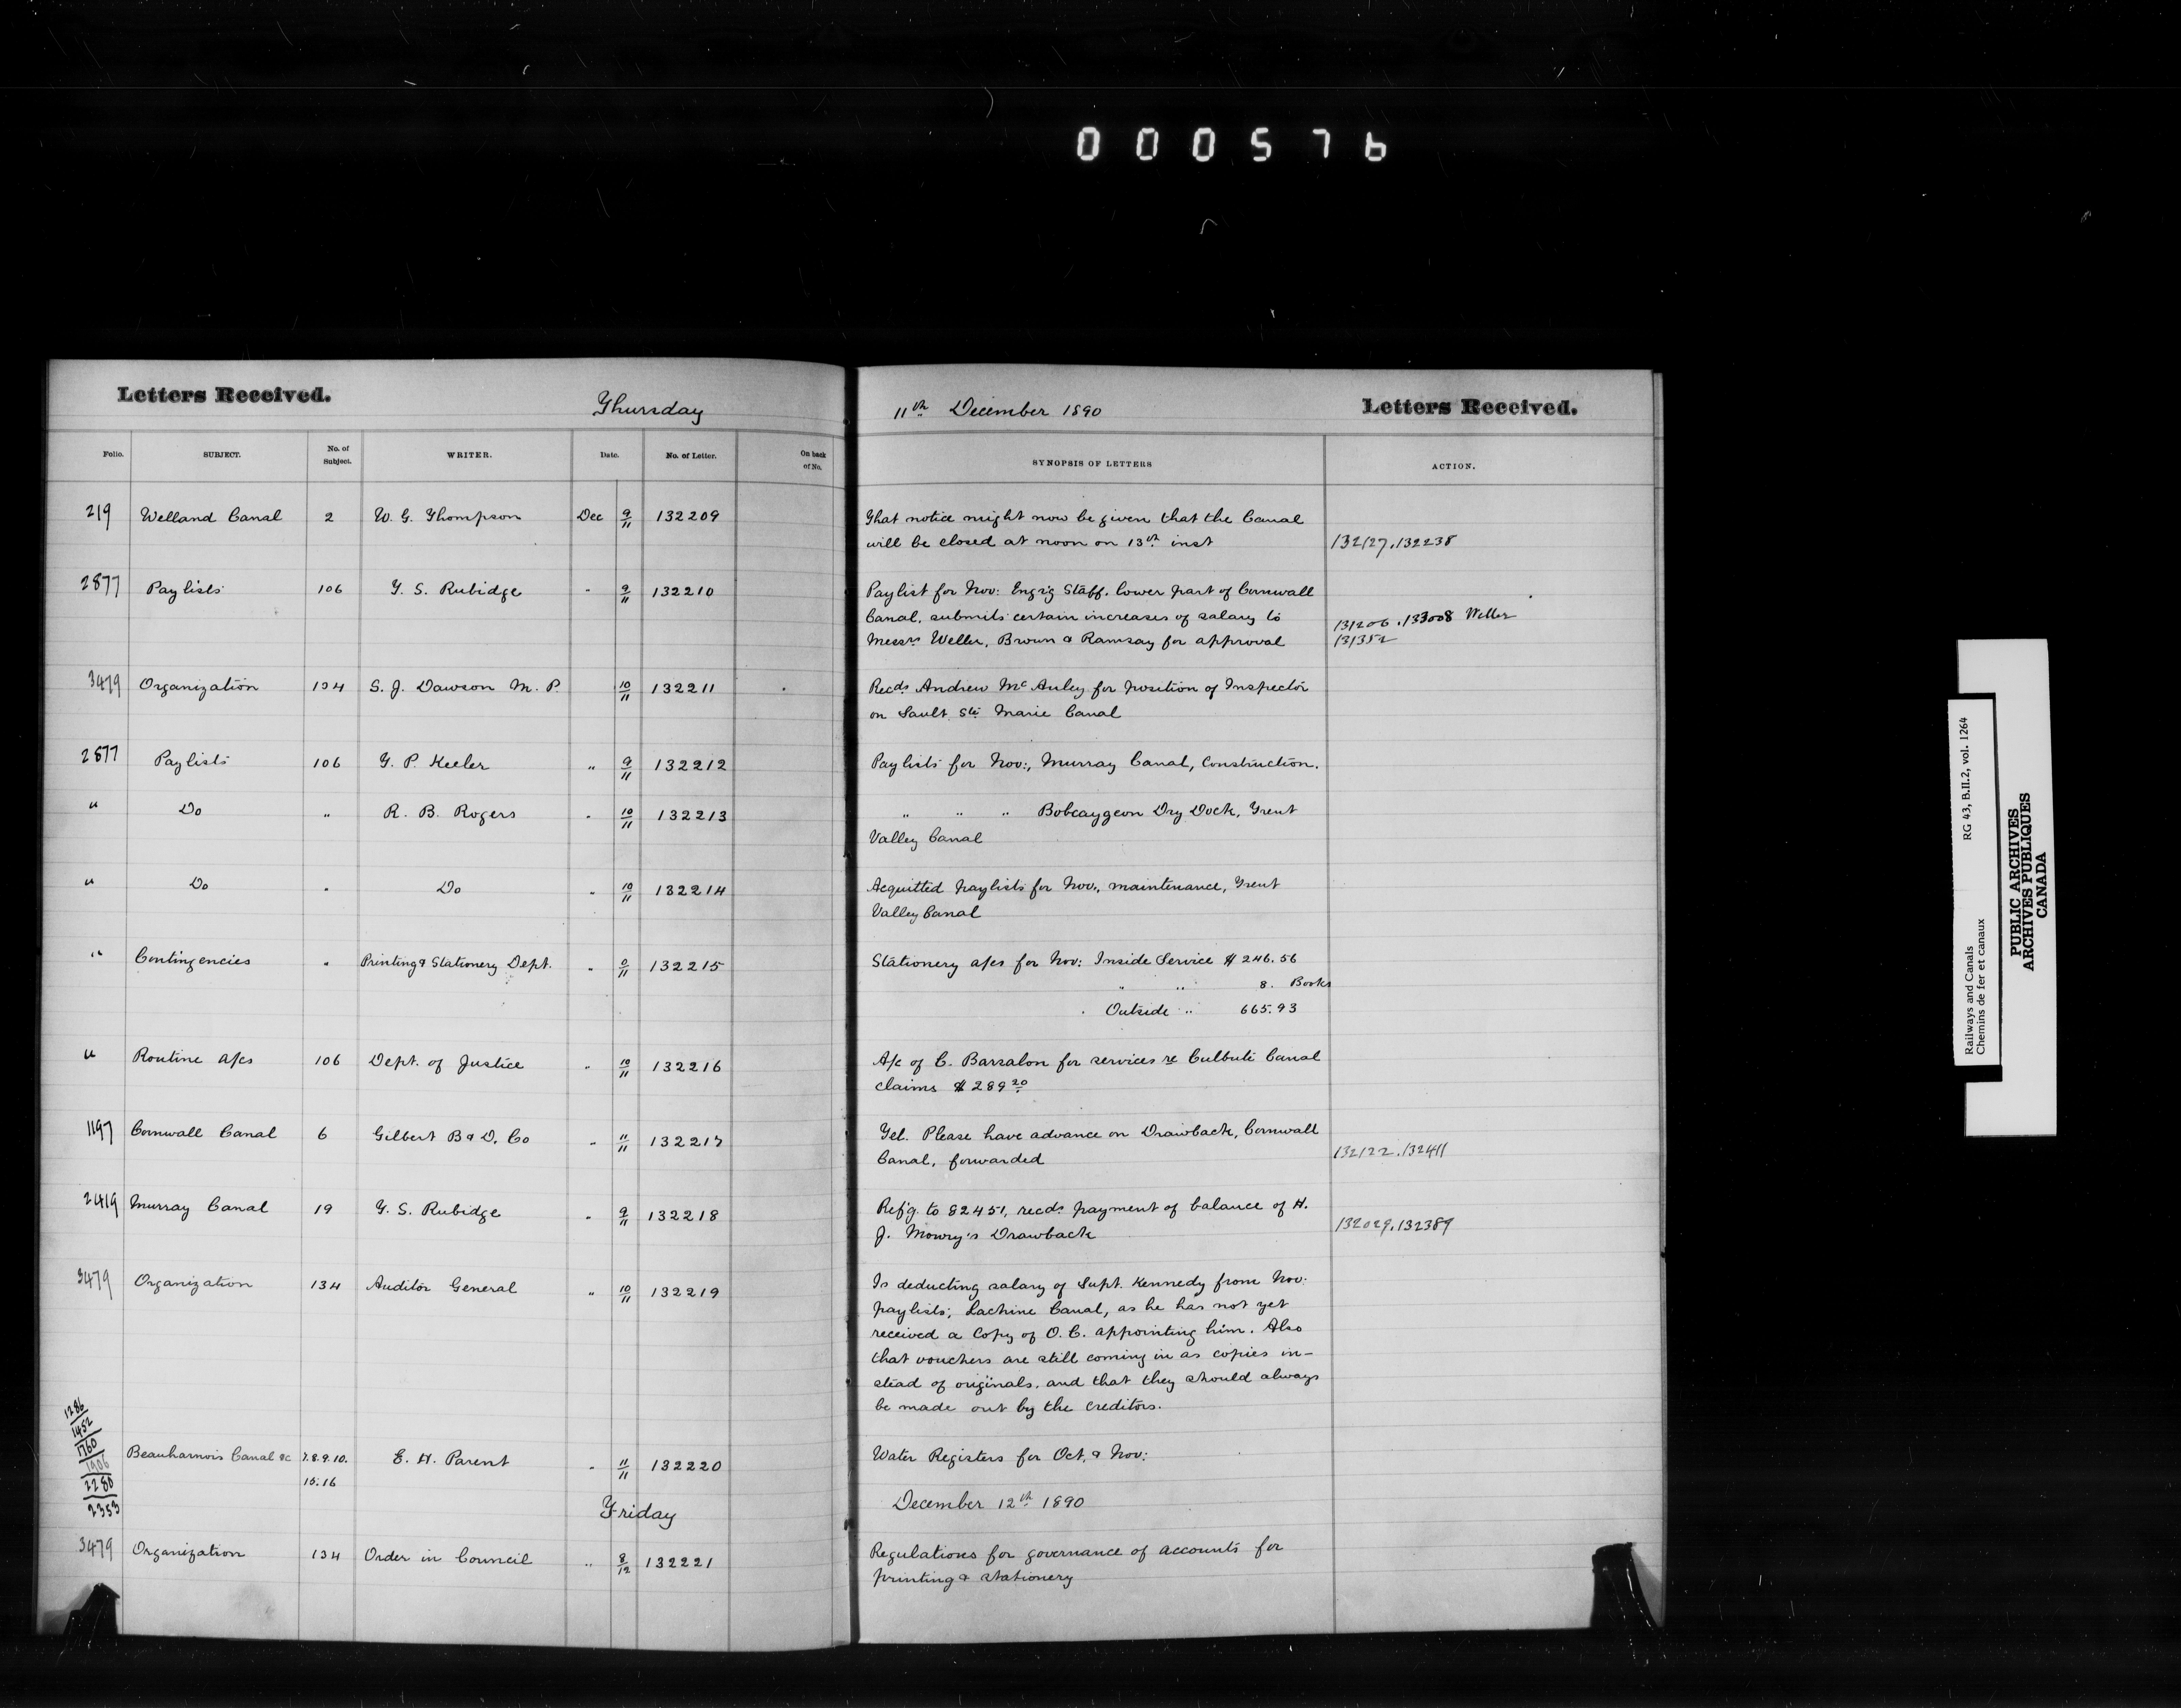 000576
Letters Received. Thursday 11th December 1890 Letters Received.
Folio. SUBJECT. No. of Subject. WRITER. Date. No. of Letter. On back of No. SYNOPSIS OF LETTERS ACTION.
219 Welland Canal 2 W. G. Thompson Dec 9/11 132209 That notice might now be given that the Canal
will be closed at noon on 13th inst 132127.132238
2877 Paylists 106 T. S. Rubidge " 9/11 132210 Paylist for Nov: Engr'g Staff, lower part of Cornwall
Canal, submits certain increases of salary to 131206.133008 Weller
Messrs Weller, Brown & Ramsay for approval 131352
3479 Organization 134 S. J. Dawson M. P. 10/11 132211 Recds Andrew McAuley for position of Inspector
on Sault Ste Marie Canal
2877 Paylists 106 T. P. Keeler " 9/11 132212 Paylists for Nov:, Murray Canal, Construction.
" Do " R. B. Rogers " 10/11 132213 " " " Bobcaygeon Dry Dock, Trent
Valley Canal
" Do " Do " 10/11 132214 Acquitted paylists for Nov., maintenance, Trent
Valley Canal
" Contingencies " Printing & Stationery Dept. " /11 132215 Stationery a/cs for Nov: Inside Service $246.56
" " 8. Books
" Outside " 665.93
" Routine a/cs 106 Dept. of Justice " 10/11 132216 A/c of C. Barsalon for services re Culbute Canal
claims $289 20
1197 Cornwall Canal 6 Gilbert B & D. Co " 11/11 132217 Tel. Please have advance on Drawback, Cornwall
Canal, forwarded 132122.132411
2419 Murray Canal 19 T. S. Rubidge " 9/11 132218 Ref'g to 82451, recds payment of balance of H.
J. Mowry's Drawback 132029.132389
3479 Organization 134 Auditor General " 10/11 132219 Is deducting salary of Supt. Kennedy from Nov:
paylists, Lachine Canal, as he has not yet
received a Copy of O. C. appointing him. Also
that vouchers are still coming in as copies in-
stead of originals, and that they should always
be made out by the creditors.
1286
1452
1760
1906
2280
2353
Beauharnois Canal &c 7.8.9.10. E. H. Parent " 11/11 132220 Water Registers for Oct. & Nov:
15.16
Friday December 12th 1890
3479 Organization 134 Order in Council " 8/12 132221 Regulations for governance of accounts for
printing & stationery
Railways and Canals RG 43, B.II.2, vol. 1264
Chemins de fer et canaux
PUBLIC ARCHIVES
ARCHIVES PUBLIQUES
CANADA